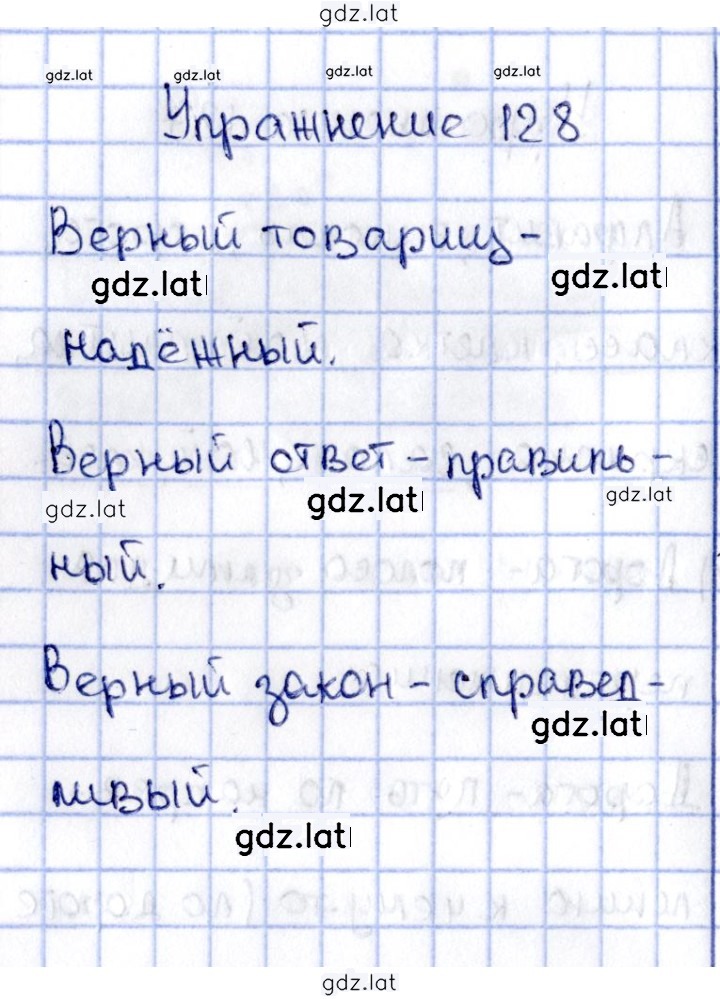 gdz.lat
gdz.lat gdz.lat gdz.lat gdz.lat
Упражнение 128
Верный товарищ -
gdz.lat gdz.lat
надёжный.
Верный ответ - правиль -
gdz.lat gdz.lat gdz.lat
ный.
Верный закон - справед -
gdz.lat
ливый.
gdz.lat
gdz.lat